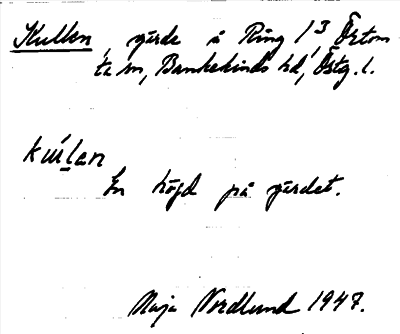 Kullen, gärde å Ring 1/3 Örtom
ta sn, Bankekinds hd, Östg. l.
kúllan
En höjd på gärdet.
Maja Nordlund 1947.